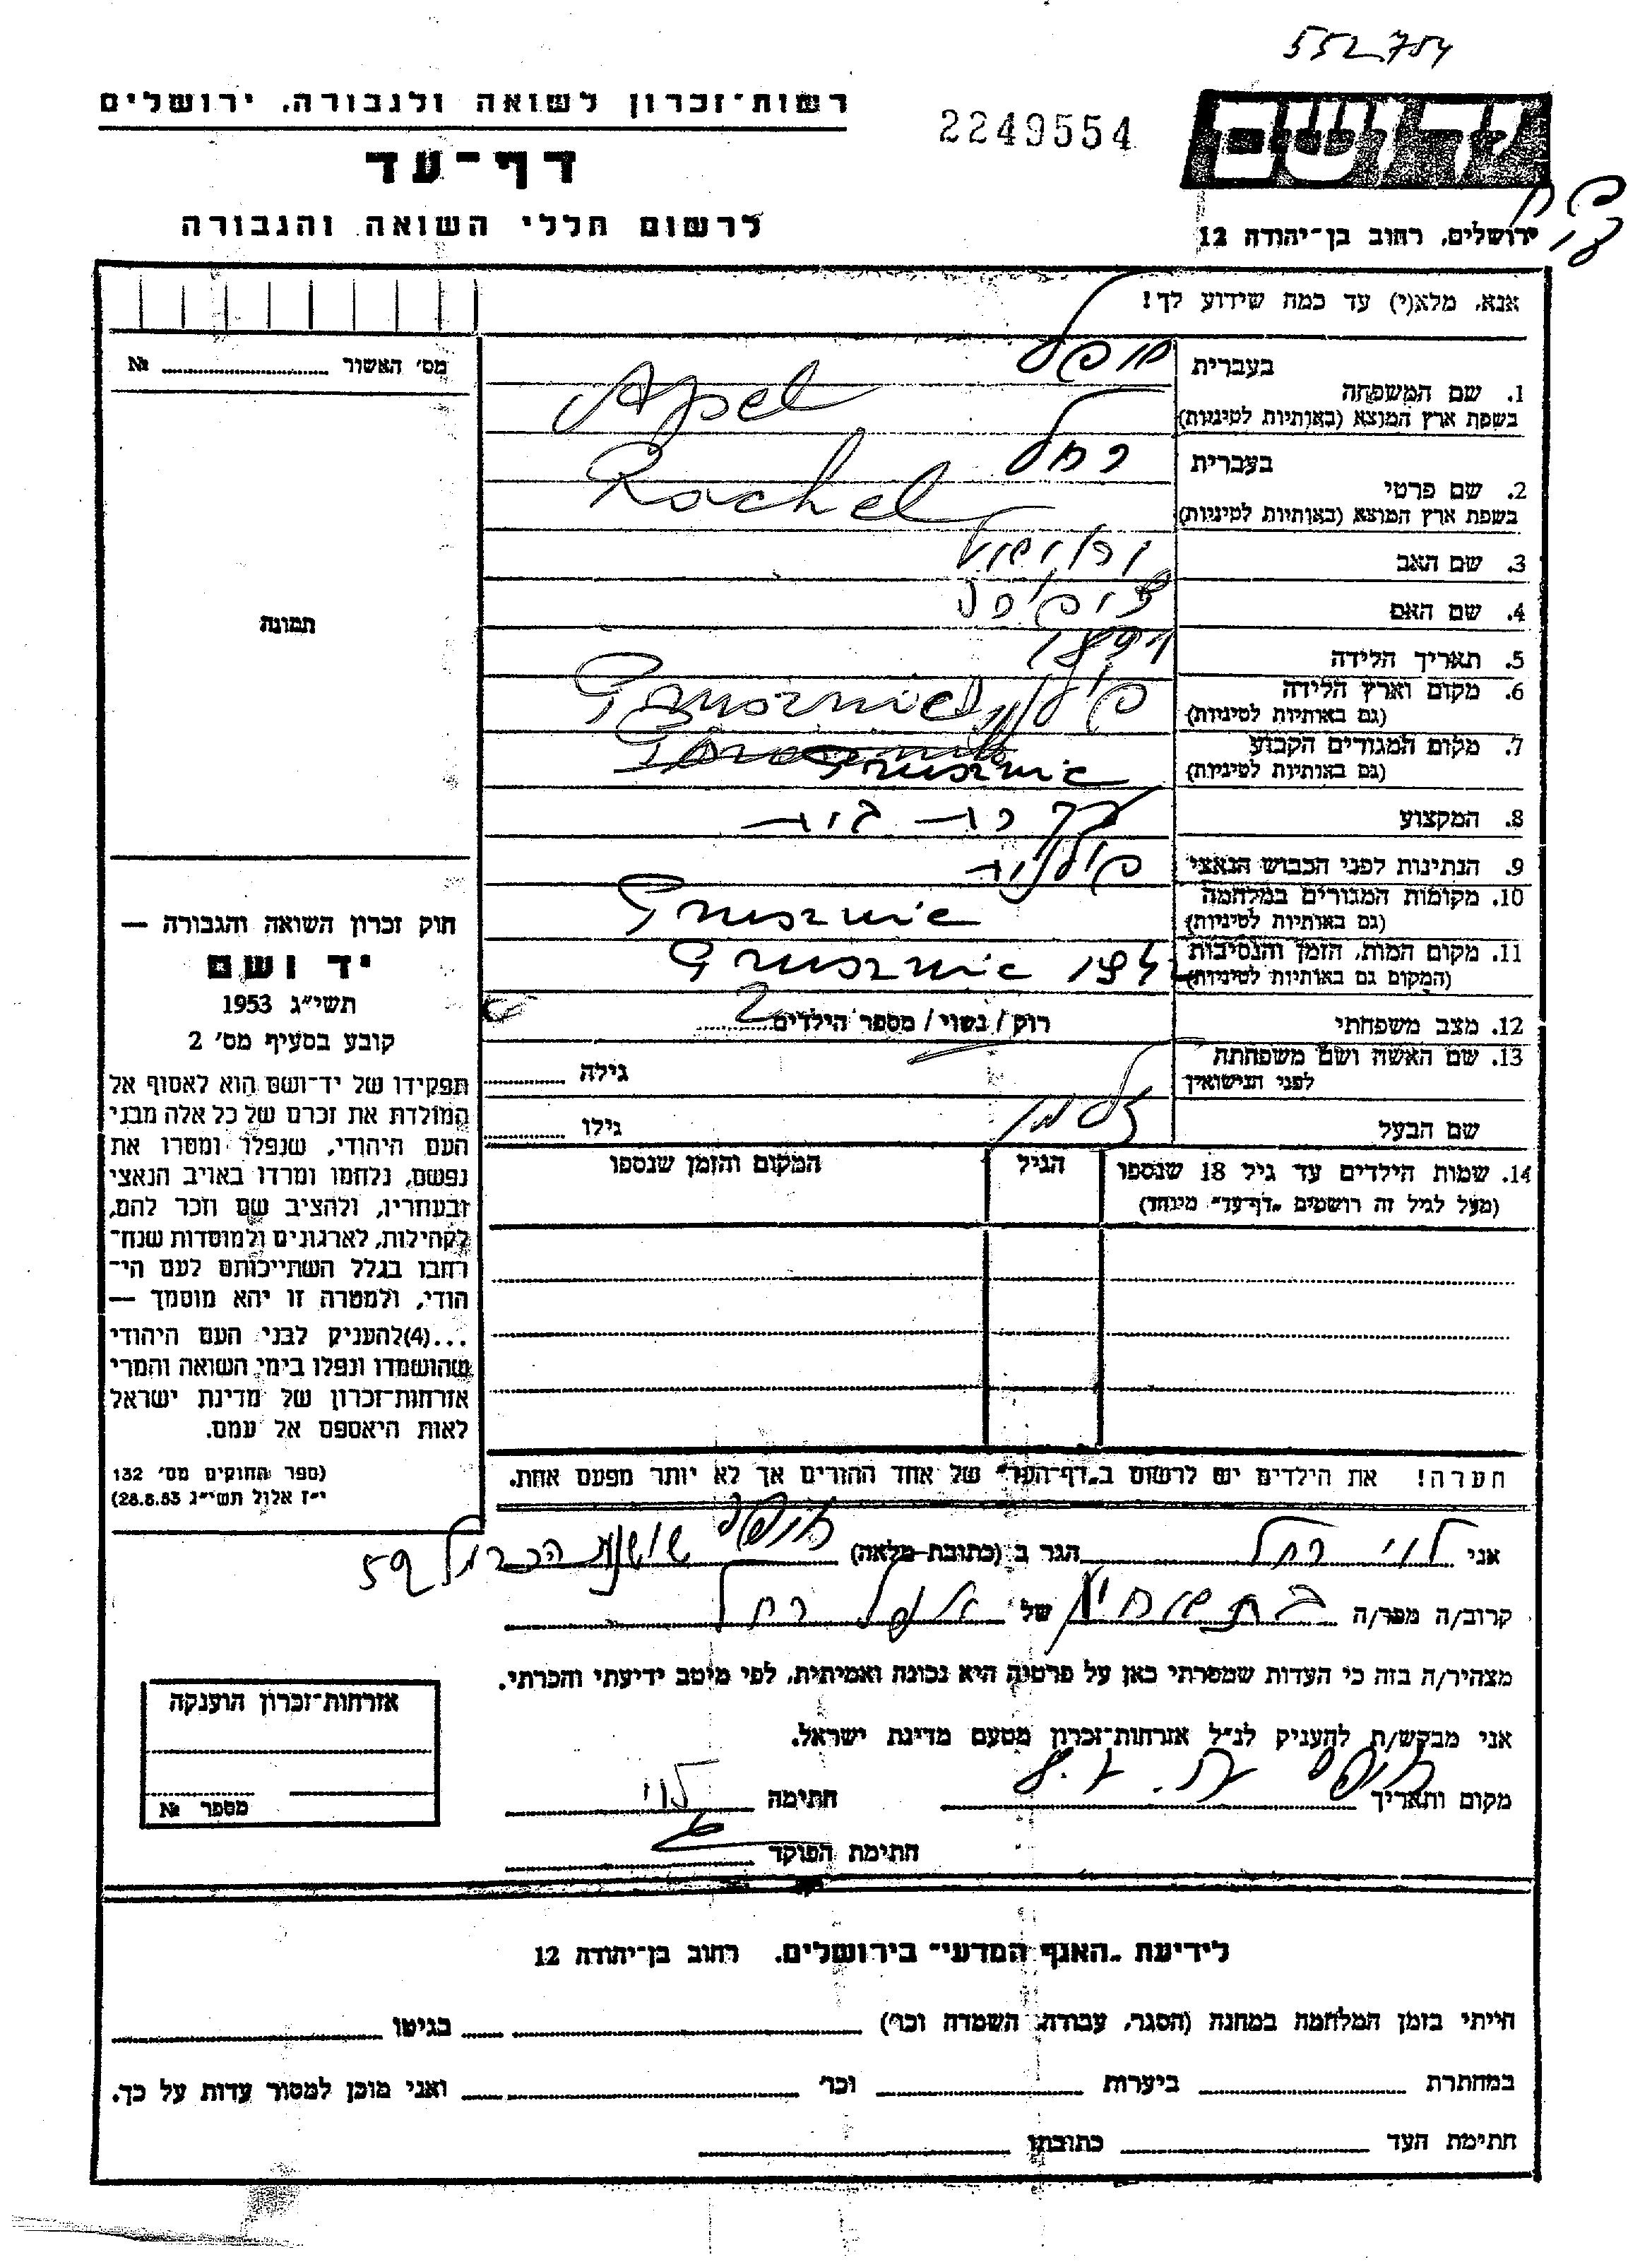 552754
רשות־זכרון לשואה ולגבורה. ירושלים
2249554
יד ושם
דף־עד
לרשום חללי השואה והגבורה
ירושלים, רחוב בן־יהודה 12
אנא, מלא(י) עד כמה שידוע לך!
מס׳ האשור № 
1. שם המשפחה
בעברית אפל
בשפת ארץ המוצא (באותיות לטיניות) Apel
2. שם פרטי
בעברית רחל
בשפת ארץ המוצא (באותיות לטיניות) Rachel
3. שם האב
4. שם האם
5. תאריך הלידה 1891
6. מקום וארץ הלידה
(גם באותיות לטיניות)
7. מקום המגורים הקבוע
(גם באותיות לטיניות) Grusznic
8. המקצוע עקרת בית
9. הנתינות לפני הכבוש הנאצי פולנית
10. מקומות המגורים במלחמה
(גם באותיות לטיניות) Grusznic
11. מקום המות, הזמן והנסיבות
(המקום גם באותיות לטיניות) Grusznic
12. מצב משפחתי רוק / נשוי / מספר הילדים 2
13. שם האשה ושם משפחתה
לפני הנישואין
גילה
שם הבעל זלמן גילו
14. שמות הילדים עד גיל 18 שנספו
(מעל לגיל זה רושמים „דף־עד״ מיוחד)
הגיל
המקום והזמן שנספו
הערה! את הילדים יש לרשום ב„דף־העד״ של אחד ההורים אך לא יותר מפעם אחת.
תמונה
חוק זכרון השואה והגבורה —
יד ושם
תשי״ג 1953
קובע בסעיף מס׳ 2
תפקידו של יד־ושם הוא לאסוף אל
המולדת את זכרם של כל אלה מבני
העם היהודי, שנפלו ומסרו את
נפשם, נלחמו ומרדו באויב הנאצי
ובעוזריו, ולהציב שם וזכר להם,
לקהילות, לארגונים ולמוסדות שנח־
רבו בגלל השתייכותם לעם הי־
הודי, ולמטרה זו יהא מוסמך —
...(4)להעניק לבני העם היהודי
שהושמדו ונפלו בימי השואה והמרי
אזרחות־זכרון של מדינת ישראל
לאות היאספם אל עמם.
(ספר החוקים מס׳ 132
י״ז אלול תשי״ג 28.8.53)
אני לוי רחל הגר ב (כתובת מלאה) חיפה שושנת הכרמל 59
קרוב/ה מכר/ה של אפל רחל
מצהיר/ה בזה כי העדות שמסרתי כאן על פרטיה היא נכונה ואמיתית, לפי מיטב ידיעתי והכרתי.
אני מבקש/ת להעניק לנ״ל אזרחות־זכרון מטעם מדינת ישראל.
מקום ותאריך חיפה חתימה לוי
חתימת הפוקד
אזרחות־זכרון הוענקה
מספר №
לידיעת „האגף המדעי״ בירושלים. רחוב בן־יהודה 12
הייתי בזמן המלחמה במחנה (הסגר, עבודה, השמדה וכר׳) בגיטו
במחתרת ביערות וכר׳ ואני מוכן למסור עדות על כך.
חתימת העד כתובתו